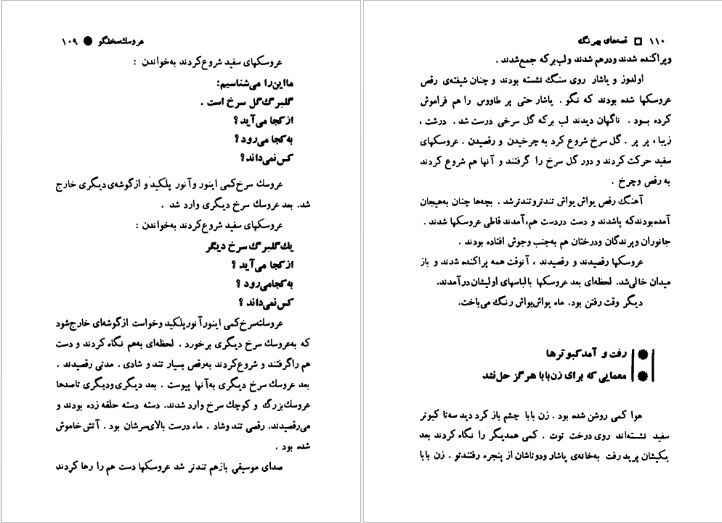 عروسك سخنگو ● ۱۰۹
عروسکهای سفید شروع کردند به خواندن :
ما این را می‌شناسیم:
گلبرگ گل سرخ است .
از کجا می‌آید ؟
به کجا می‌رود ؟
کس نمی‌داند ؟
عروسك سرخ کمی اینور و آنور پلکید و از گوشه‌ی دیگری خارج
شد. بعد عروسك سرخ دیگری وارد شد .
عروسکهای سفید شروع کردند به خواندن :
یك گلبرگ سرخ دیگر
از کجا می‌آید ؟
به کجا می‌رود ؟
کس نمی‌داند ؟
عروسك سرخ کمی اینور آنور پلکید و خواست از گوشه‌ای خارج شود
که به عروسك سرخ دیگری برخورد . لحظه‌ای به هم نگاه کردند و دست
هم را گرفتند و شروع کردند به رقص بسیار تند و شادی . مدتی رقصیدند .
بعد عروسك سرخ دیگری به آنها پیوست . بعد دیگری و دیگری تا صدها
عروسك بزرگ و کوچك سرخ وارد شدند. دسته دسته حلقه زده بودند و
می‌رقصیدند. رقصی تند و شاد . ماه درست بالای سرشان بود . آتش خاموش
شده بود .
صدای موسیقی باز هم تندتر شد عروسکها دست هم را رها کردند
۱۱۰ □ قصه‌های بهرنگ
و پراکنده شدند و درهم شدند و لب برکه جمع شدند .
اولدوز و یاشار روی سنگ نشسته بودند و چنان شیفته‌ی رقص
عروسکها شده بودند که نگو . یاشار حتی پر طاووس را هم فراموش
کرده بسود . ناگهان دیدند لب برکه گل سرخی درست شد . درشت ،
زیبا ، پر پر . گل سرخ شروع کرد به چرخیدن و رقصیدن . عروسکهای
سفید حرکت کردند و دور گل سرخ را گرفتند و آنها هم شروع کردند
به رقص و چرخ .
آهنگ رقص یواش یواش تندتر و تندتر شد . بچه‌ها چنان به هیجان
آمده بودند که پاشدند و دست در دست هم، آمدند قاطی عروسکها شدند .
جانوران و پرندگان و درختان هم به جنب و جوش افتاده بودند .
عروسکها رقصیدند و رقصیدند ، آنوقت همه پراکنده شدند و باز
میدان خالی شد. لحظه‌ای بعد عروسکها با لباسهای اولیشان درآمدند.
دیگر وقت رفتن بود. ماه یواش یواش رنگ می‌باخت.
● رفت و آمد کبوترها
● معمایی که برای زن بابا هرگز حل نشد
هوا کمی روشن شده بود . زن بابا چشم باز کرد دید سه تا کبوتر
سفید نشسته‌اند روی درخت توت . کمی همدیگر را نگاه کردند بعد
یکیشان پرید رفت به خانه‌ی یاشار و دوتاشان از پنجره رفتند تو . زن بابا